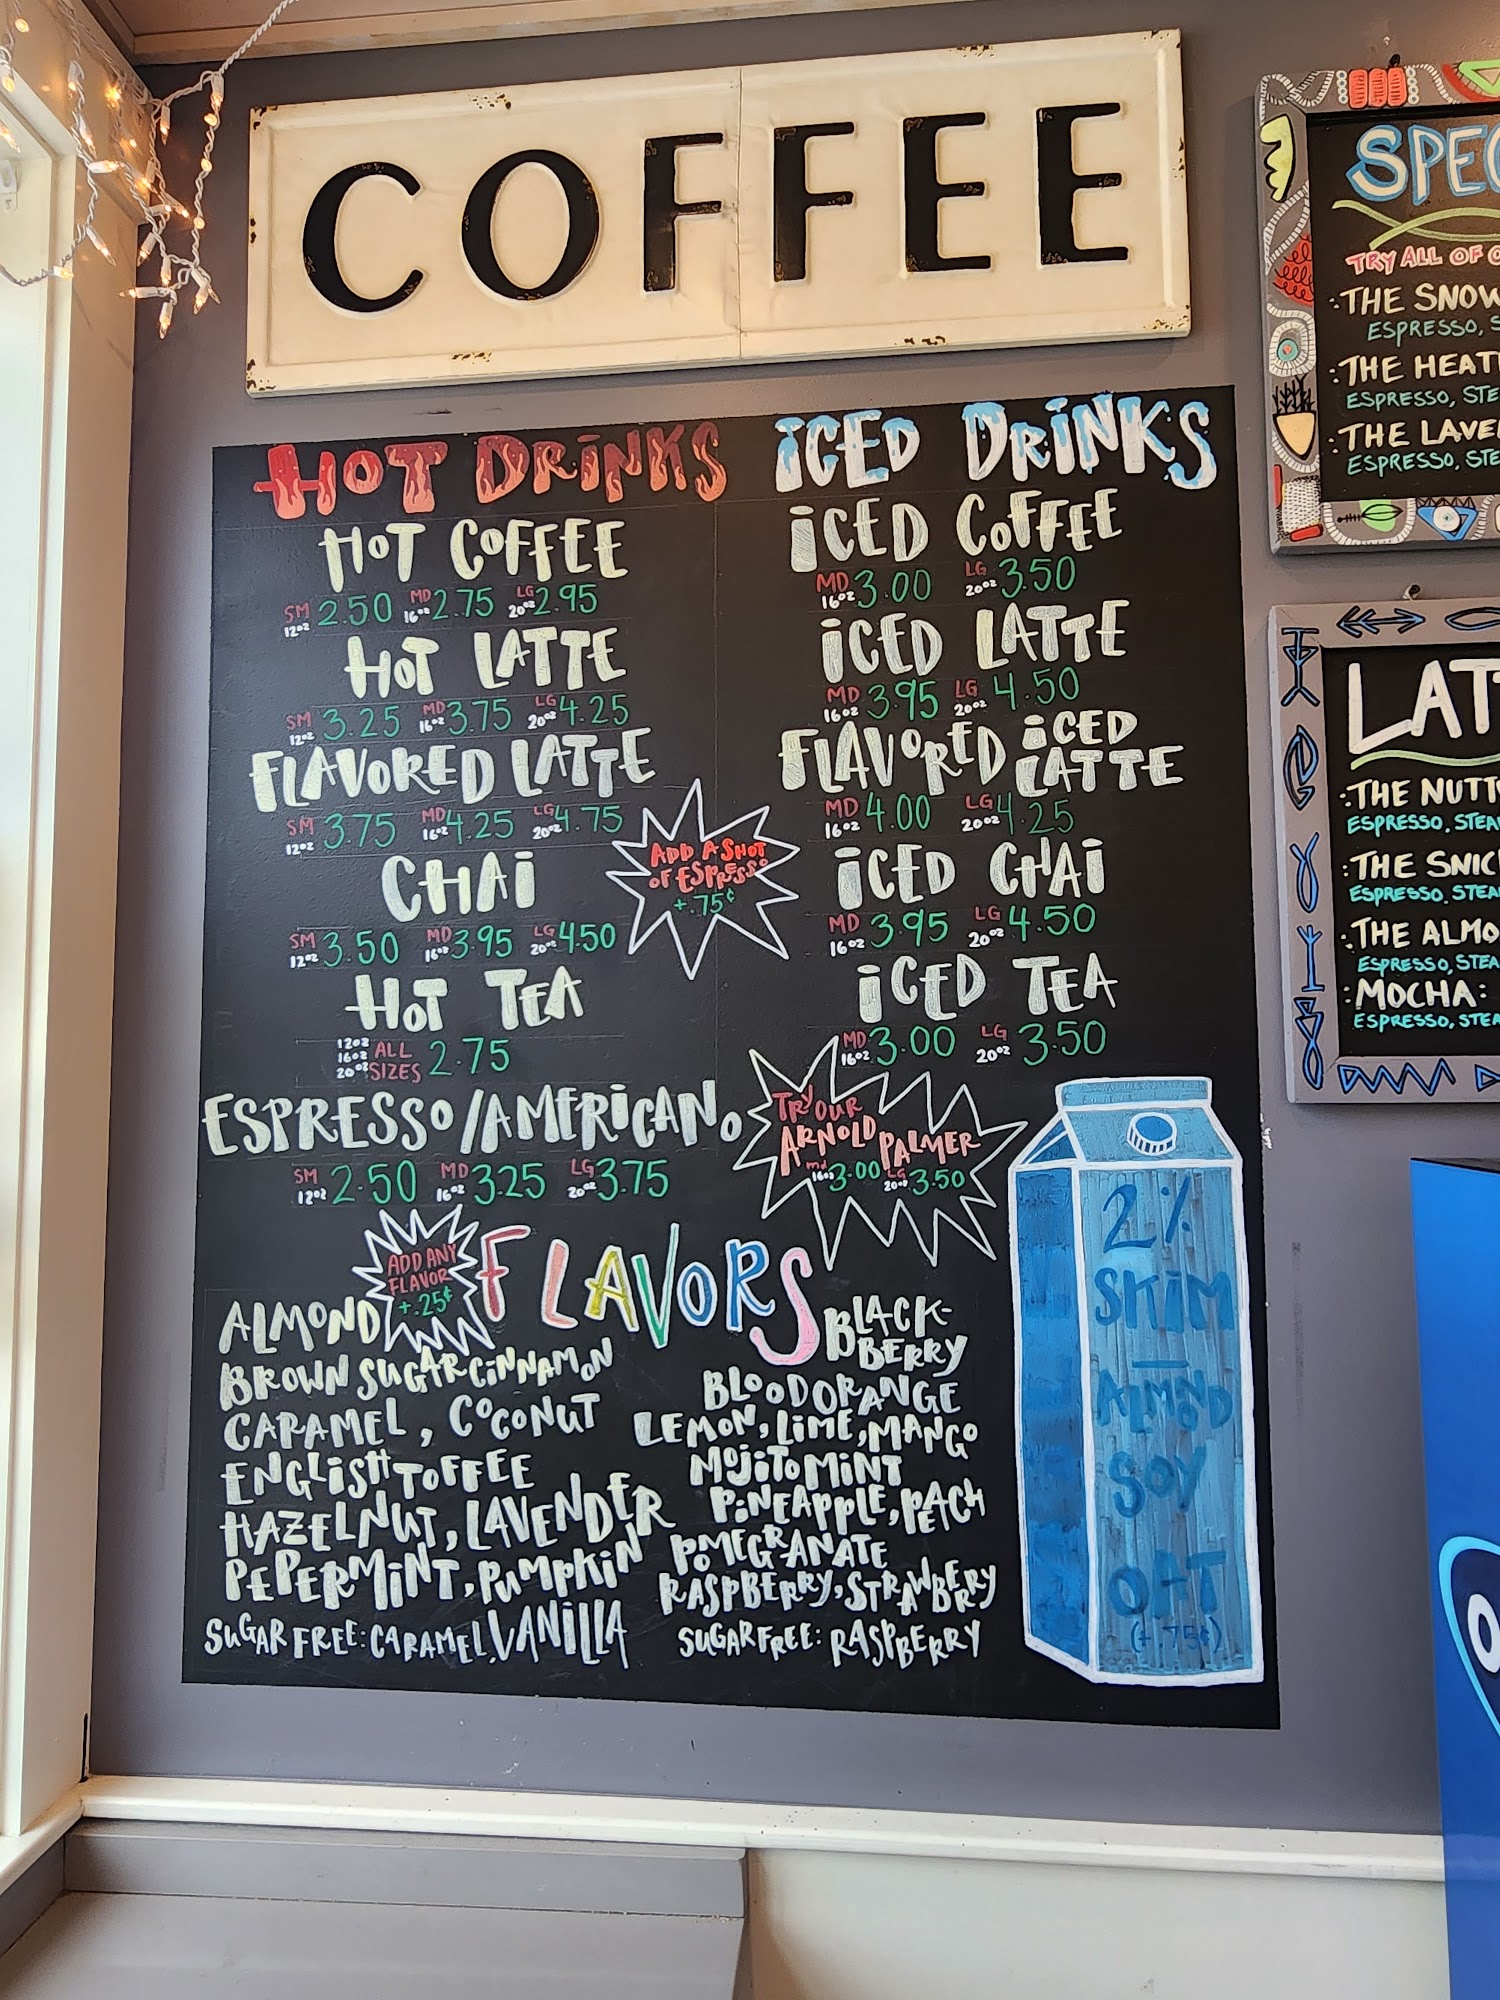 COFFEE
HOT DRINKS
HOT COFFEE
SM 12oz 2.50 MD 16oz 2.75 LG 20oz 2.95
HOT LATTE
SM 12oz 3.25 MD 16oz 3.75 LG 20oz 4.25
FLAVORED LATTE
SM 12oz 3.75 MD 16oz 4.25 LG 20oz 4.75
CHAI
SM 12oz 3.50 MD 16oz 3.95 LG 20oz 4.50
HOT TEA
12oz 16oz 20oz ALL SIZES 2.75
ESPRESSO/AMERICANO
SM 12oz 2.50 MD 16oz 3.25 LG 20oz 3.75
ADD A SHOT
OF ESPRESSO
+.75¢
ICED DRINKS
ICED COFFEE
MD 16oz 3.00 LG 20oz 3.50
ICED LATTE
MD 16oz 3.95 LG 20oz 4.50
FLAVORED ICED LATTE
MD 16oz 4.00 LG 20oz 4.25
ICED CHAI
MD 16oz 3.95 LG 20oz 4.50
ICED TEA
MD 16oz 3.00 LG 20oz 3.50
TRY OUR
ARNOLD PALMER
md 16oz 3.00 LG 20oz 3.50
ADD ANY
FLAVOR
+.25¢
FLAVORS
ALMOND
BROWN SUGAR CINNAMON
CARAMEL, COCONUT
ENGLISH TOFFEE
HAZELNUT, LAVENDER
PEPERMINT, PUMPKIN
SUGAR FREE: CARAMEL, VANILLA
BLACK-
BERRY
BLOOD ORANGE
LEMON, LIME, MANGO
MOJITO MINT
PINEAPPLE, PEACH
POMEGRANATE
RASPBERRY, STRAWBERRY
SUGAR FREE: RASPBERRY
2%
SKIM
ALMOND
SOY
OAT
(+.75¢)
SPEC
TRY ALL OF O
THE SNOW
ESPRESSO, S
THE HEAT
ESPRESSO, STE
THE LAVE
ESPRESSO, STE
LAT
THE NUTT
ESPRESSO, STEA
THE SNIC
ESPRESSO, STEA
THE ALMO
ESPRESSO, STEA
MOCHA:
ESPRESSO, STEA